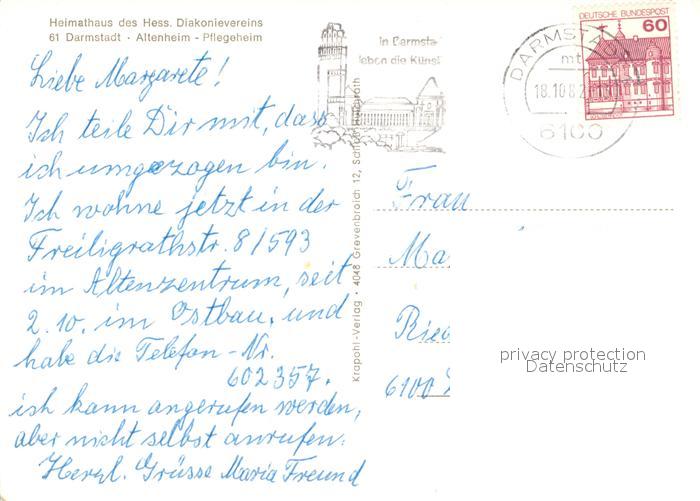 Heimathaus des Hess. Diakonievereins
61 Darmstadt · Altenheim - Pflegeheim
Liebe Margarete!
Ich teile Dir mit, dass
ich umgezogen bin.
Ich wohne jetzt in der
Freiligrathstr. 8/593
im Altenzentrum, seit
2. 10. im Ostbau, und
habe die Telefon-Nr.
602357.
ich kann angerufen werden,
aber nicht selbst anrufen.
Herzl. Grüsse Maria Freund
Krapohl-Verlag · 4048 Grevenbroich 12, Schloß Hülchrath
in Darmsta
leben die Künst
DARMSTADT
mt
18.10.82
6100
DEUTSCHE BUNDESPOST
60
Frau
Ma
Rie
6100
privacy protection
Datenschutz